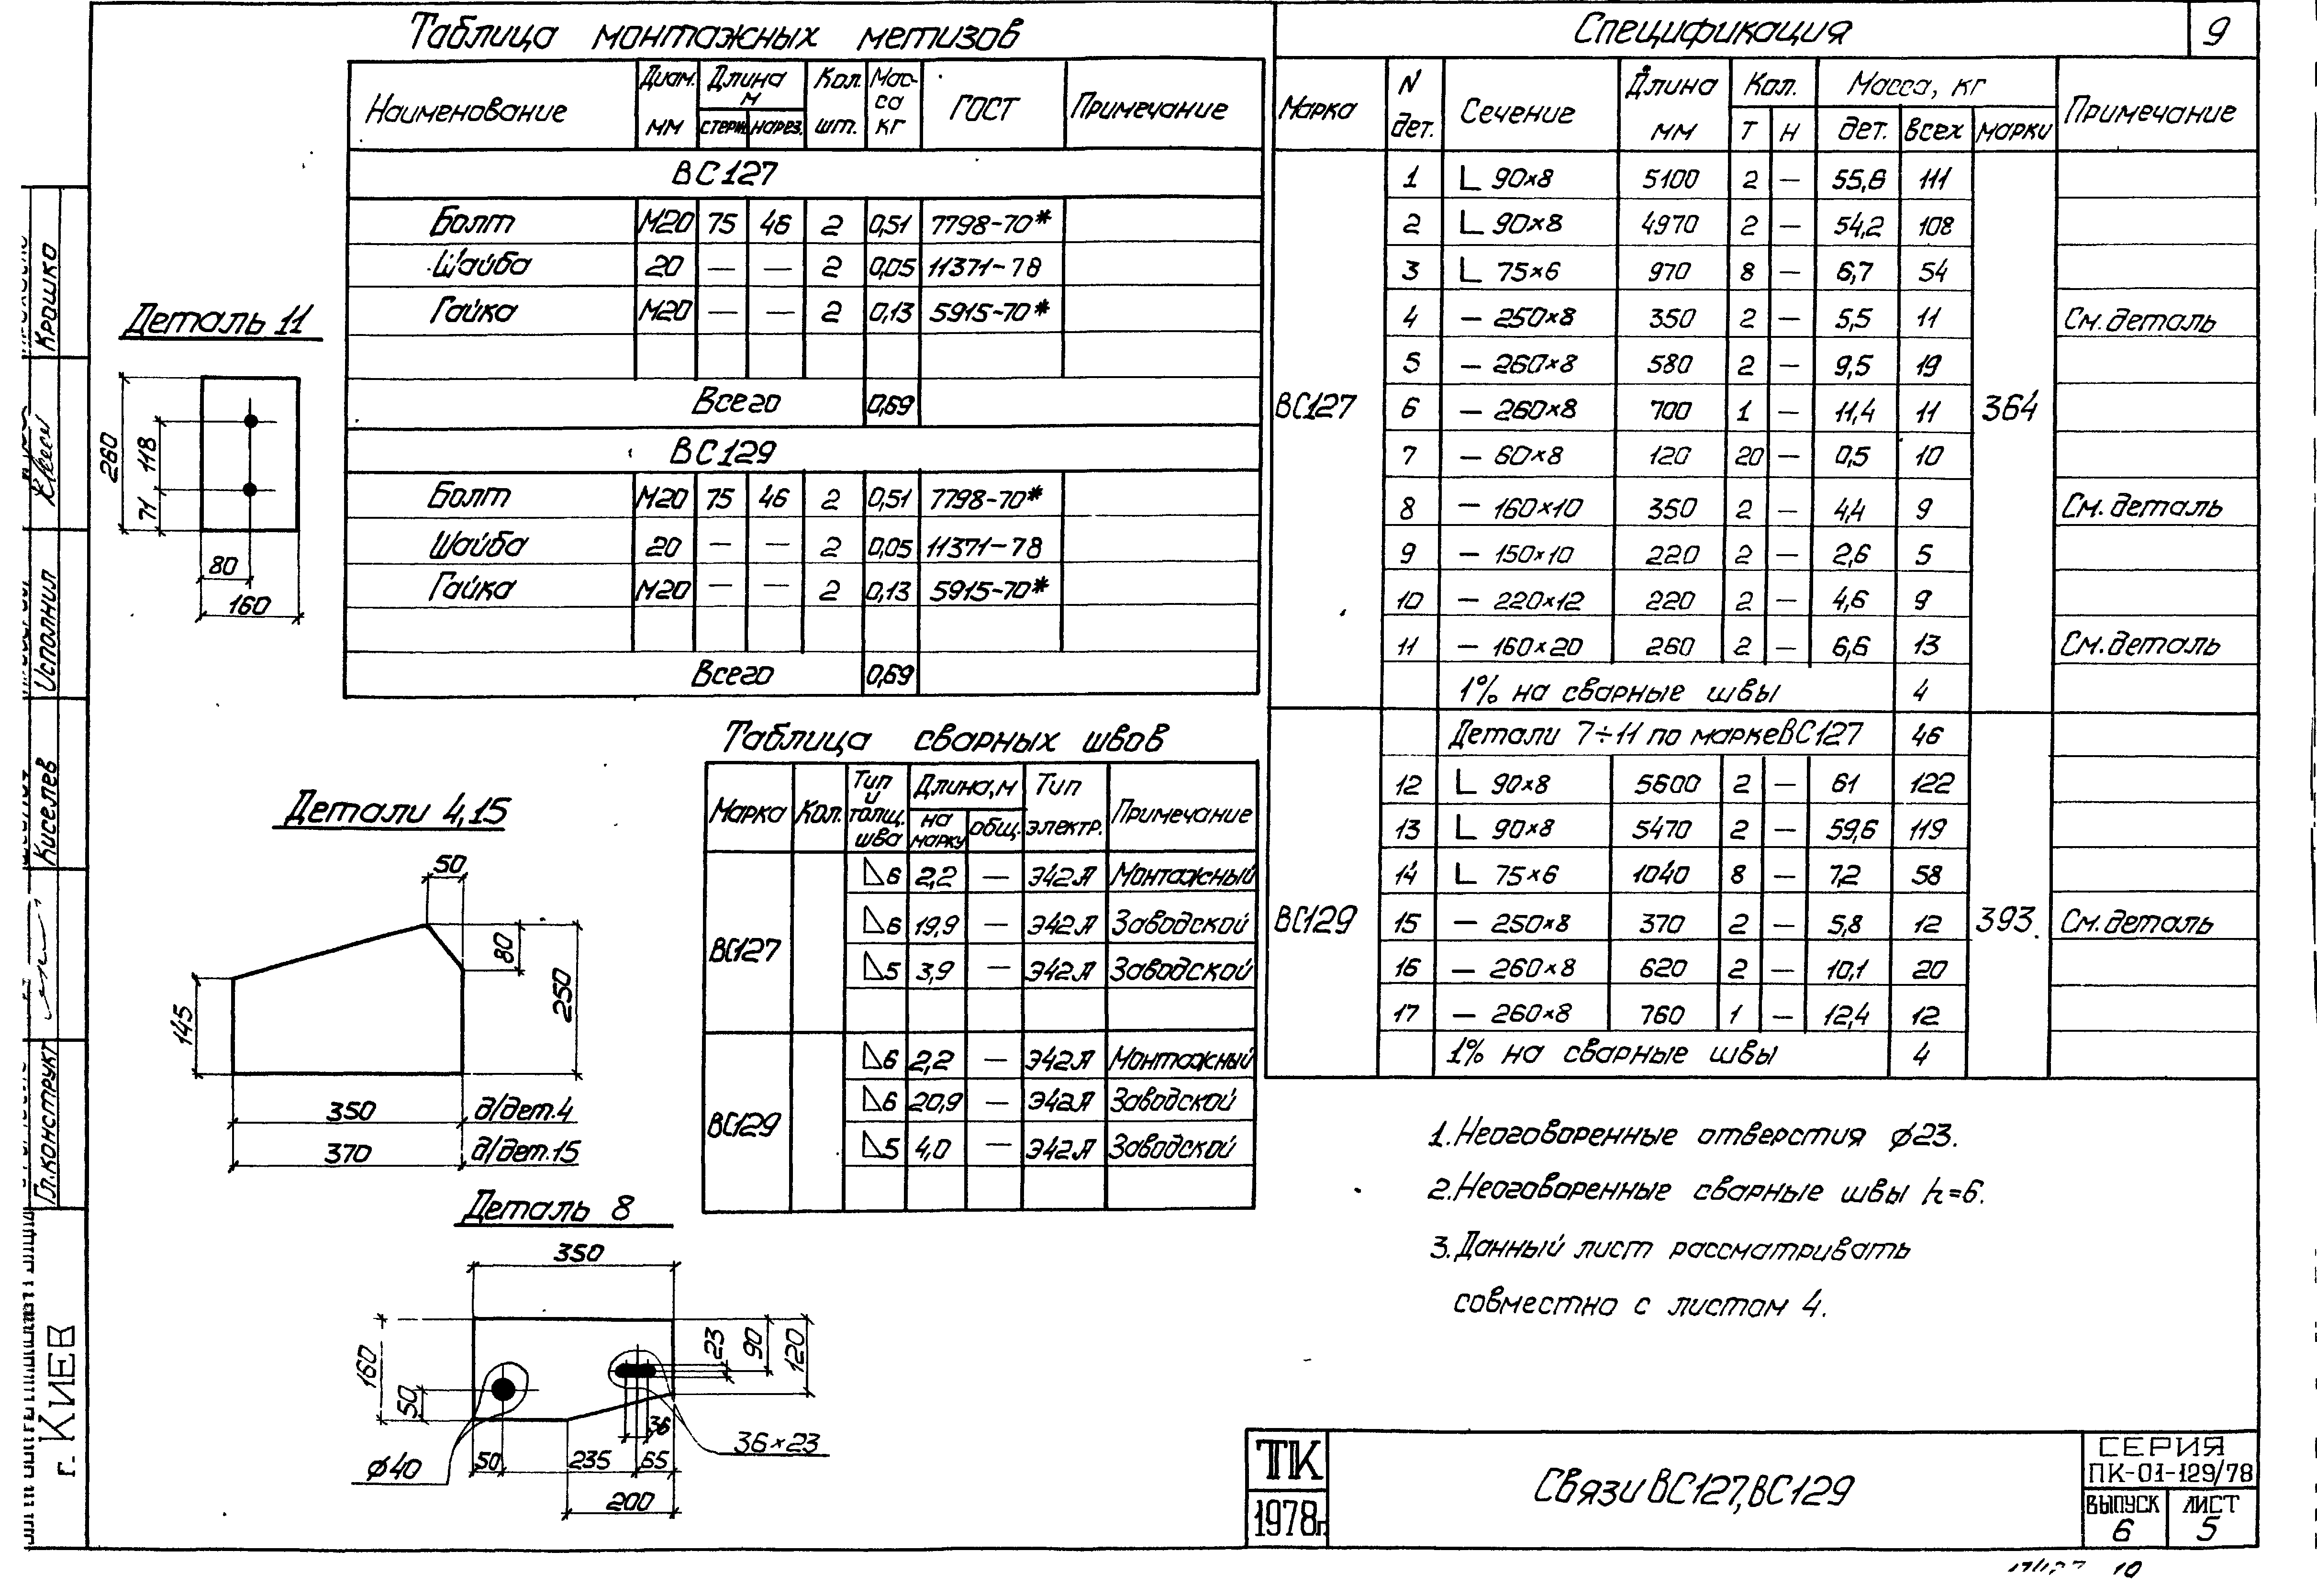 Таблица монтажных метизов
Наименование | Диам. мм | Длина м стерж. нарез. | Кол. шт. | Масса кг | ГОСТ | Примечание
ВС127
Болт М20 75 46 2 0,51 7798-70*
Шайба 20 — — 2 0,05 11371-78
Гайка М20 — — 2 0,13 5915-70*
Всего 0,69
ВС129
Болт М20 75 46 2 0,51 7798-70*
Шайба 20 — — 2 0,05 11371-78
Гайка М20 — — 2 0,13 5915-70*
Всего 0,69
Таблица сварных швов
Марка | Кол. | Тип и толщ. шва | Длина, м на марку общ. | Тип электр. | Примечание
ВС127
⊿6 2,2 — Э42А Монтажный
⊿6 19,9 — Э42А Заводской
⊿5 3,9 — Э42А Заводской
ВС129
⊿6 2,2 — Э42А Монтажный
⊿6 20,9 — Э42А Заводской
⊿5 4,0 — Э42А Заводской
Спецификация
9
Марка | N дет. | Сечение | Длина мм | Кол. Т Н | Масса, кг дет. всех марки | Примечание
ВС127 364
1 L 90×8 5100 2 — 55,6 111
2 L 90×8 4970 2 — 54,2 108
3 L 75×6 970 8 — 6,7 54
4 — 250×8 350 2 — 5,5 11 См. деталь
5 — 260×8 580 2 — 9,5 19
6 — 260×8 700 1 — 11,4 11
7 — 60×8 120 20 — 0,5 10
8 — 160×10 350 2 — 4,4 9 См. деталь
9 — 150×10 220 2 — 2,6 5
10 — 220×12 220 2 — 4,6 9
11 — 160×20 260 2 — 6,6 13 См. деталь
1% на сварные швы 4
ВС129 393
Детали 7÷11 по марке ВС127 46
12 L 90×8 5600 2 — 61 122
13 L 90×8 5470 2 — 59,6 119
14 L 75×6 1040 8 — 7,2 58
15 — 250×8 370 2 — 5,8 12 См. деталь
16 — 260×8 620 2 — 10,1 20
17 — 260×8 760 1 — 12,4 12
1% на сварные швы 4
1. Неоговоренные отверстия ⌀23.
2. Неоговоренные сварные швы h=6.
3. Данный лист рассматривать
совместно с листом 4.
Деталь 11
260
118
71
80
160
Детали 4,15
50
80
250
145
350 д/дет. 4
370 д/дет. 15
Деталь 8
350
160
50
23
90
120
36
36×23
⌀40
50 235 65
200
Крашко
Исполнил
Киселев
Гл. конструкт
г. Киев
ТК
1978г.
Связи ВС127, ВС129
СЕРИЯ
ПК-01-129/78
ВЫПУСК
6
ЛИСТ
5
10